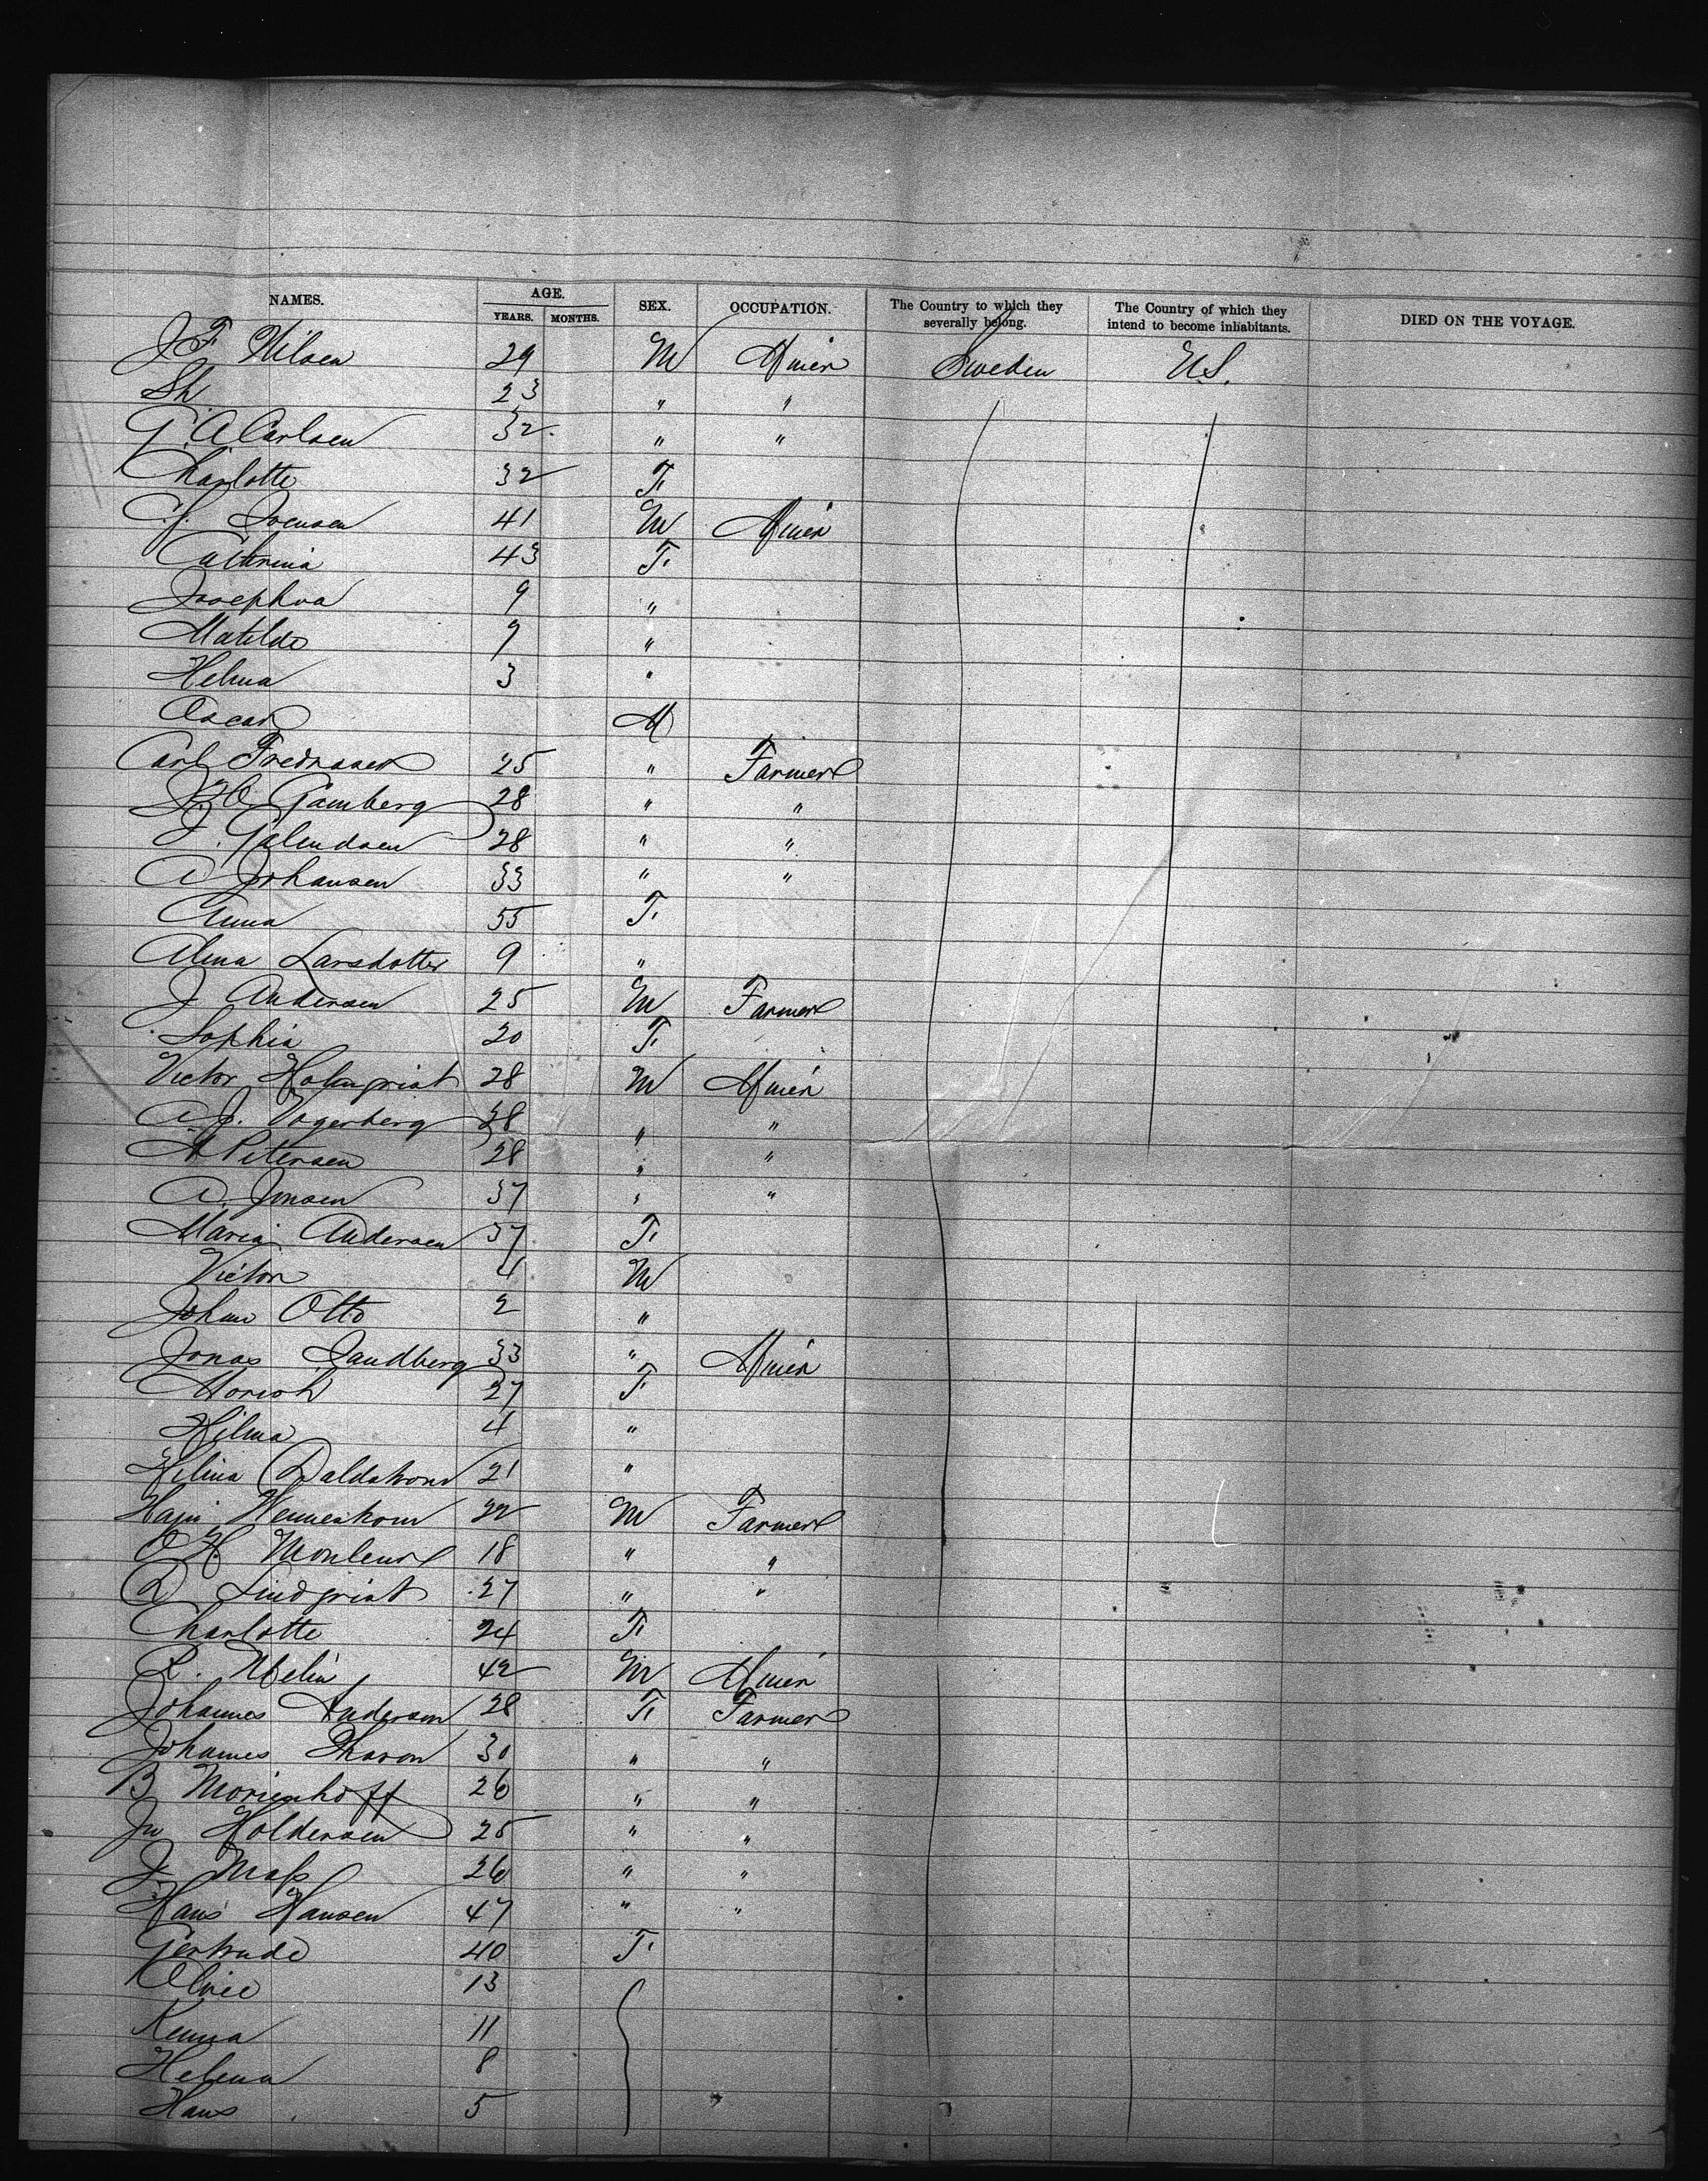 NAMES. AGE. SEX. OCCUPATION. The Country to which they severally belong. The Country of which they intend to become inhabitants. DIED ON THE VOYAGE.
YEARS. MONTHS.
J F Nilsen 29 M Miner Sweden U.S.
Sh 23 " "
G. A Carlsen 32 " "
Charlotte 32 F.
C. J. 41 M Miner
Cathrina 43 F.
Josephva 9 "
Matilda 7 "
Helma 3 "
Oscar M
Carl Fredrssen 25 " Farmer
Gamberg 28 " "
J. 28 " "
A Johansen 33 " "
Anna 55 F.
Alma Larsdotter 9 "
J Andersen 25 M Farmer
Sophia 20 F.
Victor Holmqrist 28 M Miner
A. J. Vogerberg 28 " "
Petersen 28 " "
A. Jonsen 37 " "
Maria Andersen 37 F.
Victor 4 M
Johan Otto 2 "
Jonas Sandberg 33 " Miner
27 F
Hilma 4 "
Helina 21 "
22 M Farmer
O H 18 " "
Lindqrist 27 " "
Charlotte 24 F.
R. 42 M Miner
Johannes Anderson 28 F. Farmer
Johannes 30 " "
B Morienhoff 26 " "
Holdersen 25 " "
J. 26 " "
Hans Hansen 47 " "
Gertrude 40 F.
13
Kenna 11
Helena 8
Hans 5